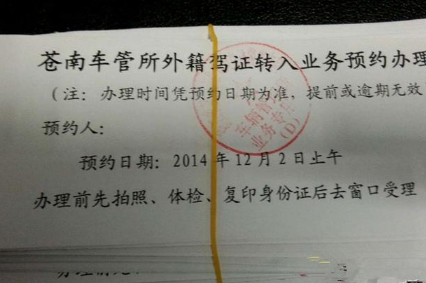 苍南车管所外籍驾证转入业务预约办理
(注：办理时间凭预约日期为准，提前或逾期无效
预约人：
预约日期：2014年12月2日上午
办理前先拍照、体检、复印身份证后去窗口受理
车辆管
业务专
(D)